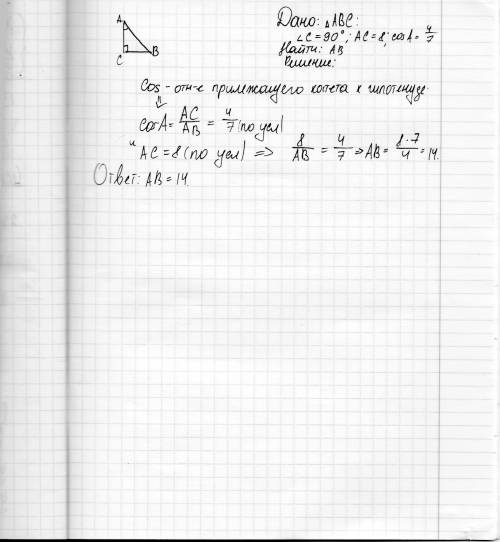 A
C
B
Дано: △ABC:
∠C = 90°; AC = 8; cosA = 4/7
Найти: AB
Решение:
Cos - отн-е прилежащего катета к гипотенузе.
⇓
cosA = AC/AB = 4/7 (по усл)
и AC = 8 (по усл) => 8/AB = 4/7 => AB = 8·7/4 = 14.
Ответ: AB = 14.